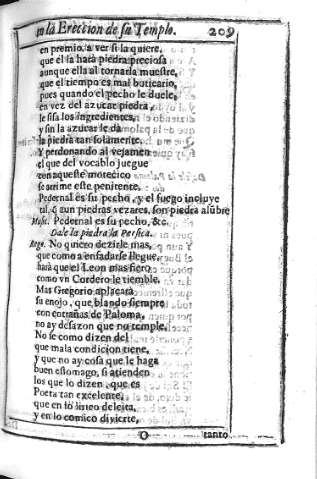 en la Ereccion de su Templo. 209
en premio, a ver si la quiere,
que èl la harà piedra preciosa
aunque ella al tornarla muestre,
que el tiempo es mal boticario,
pues quando el pecho le duele,
en vez del azucar piedra,
le sisa los ingredientes,
y sin la azucar le dà
la piedra tan solamente.
Y perdonando al vejamen
el que del vocablo juegue
con aqueste motecico
se arrime este penitente.
Pedernal es su pecho, y el fuego incluye
aun piedras vezares, son piedra alubre
Music. Pedernal es su pecho, &c.
Dale la piedra la Persica.
Rego. No quiero dezirle mas,
que como a enfadarse llegue,
harà que el Leon mas fiero
como vn Cordero le tiemble.
Mas Gregorio aplacarà
su enojo, que blando siempre
con entrañas de Paloma,
no ay desazon que no temple.
No se como dizen del
que mala condicion tiene,
y que no ay cosa que le haga
buen estomago, si atienden
los que lo dizen, que es
Poeta tan excelente,
que en lo lirico deleita,
y en lo comico divierte,
O tanto